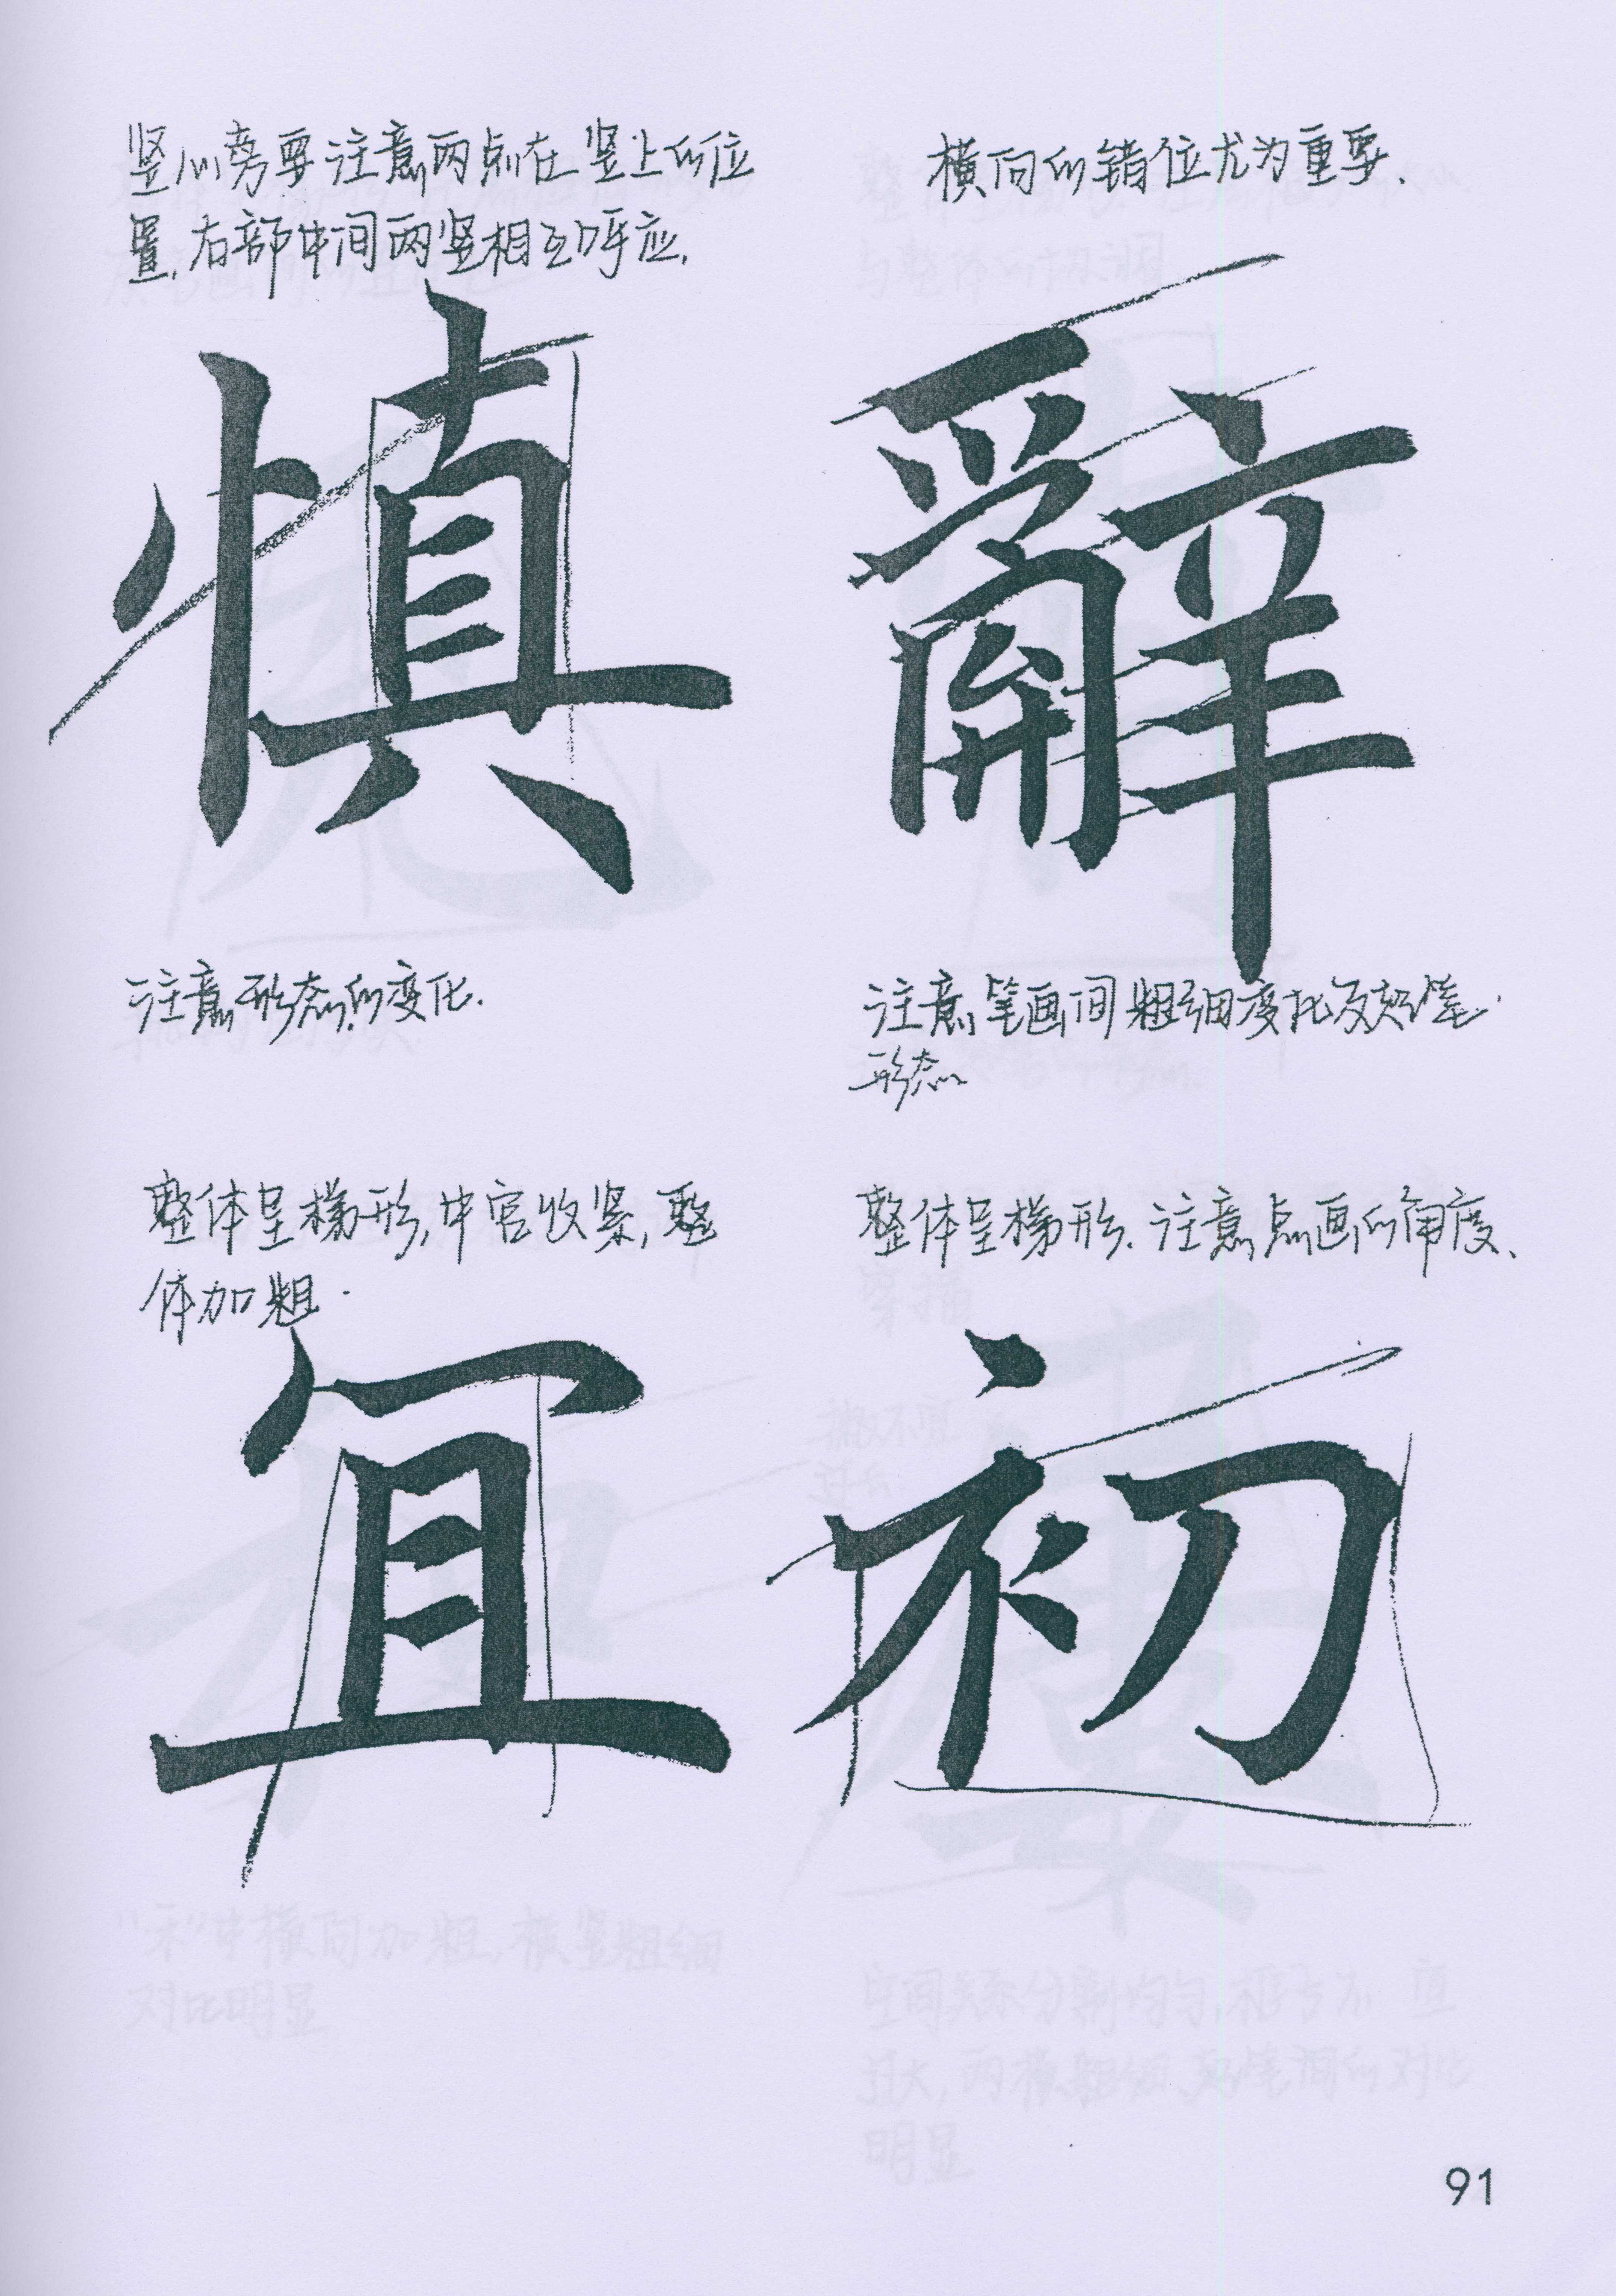 竖心旁要注意两点在竖上的位
置,右部中间两竖相互呼应,
慎
注意形态的变化.
横向的错位尤为重要、
辭
注意笔画间粗细变化及起笔
形态
整体呈梯形,中宫收紧,整
体加粗.
宜
整体呈梯形.注意点画的角度、
初
91